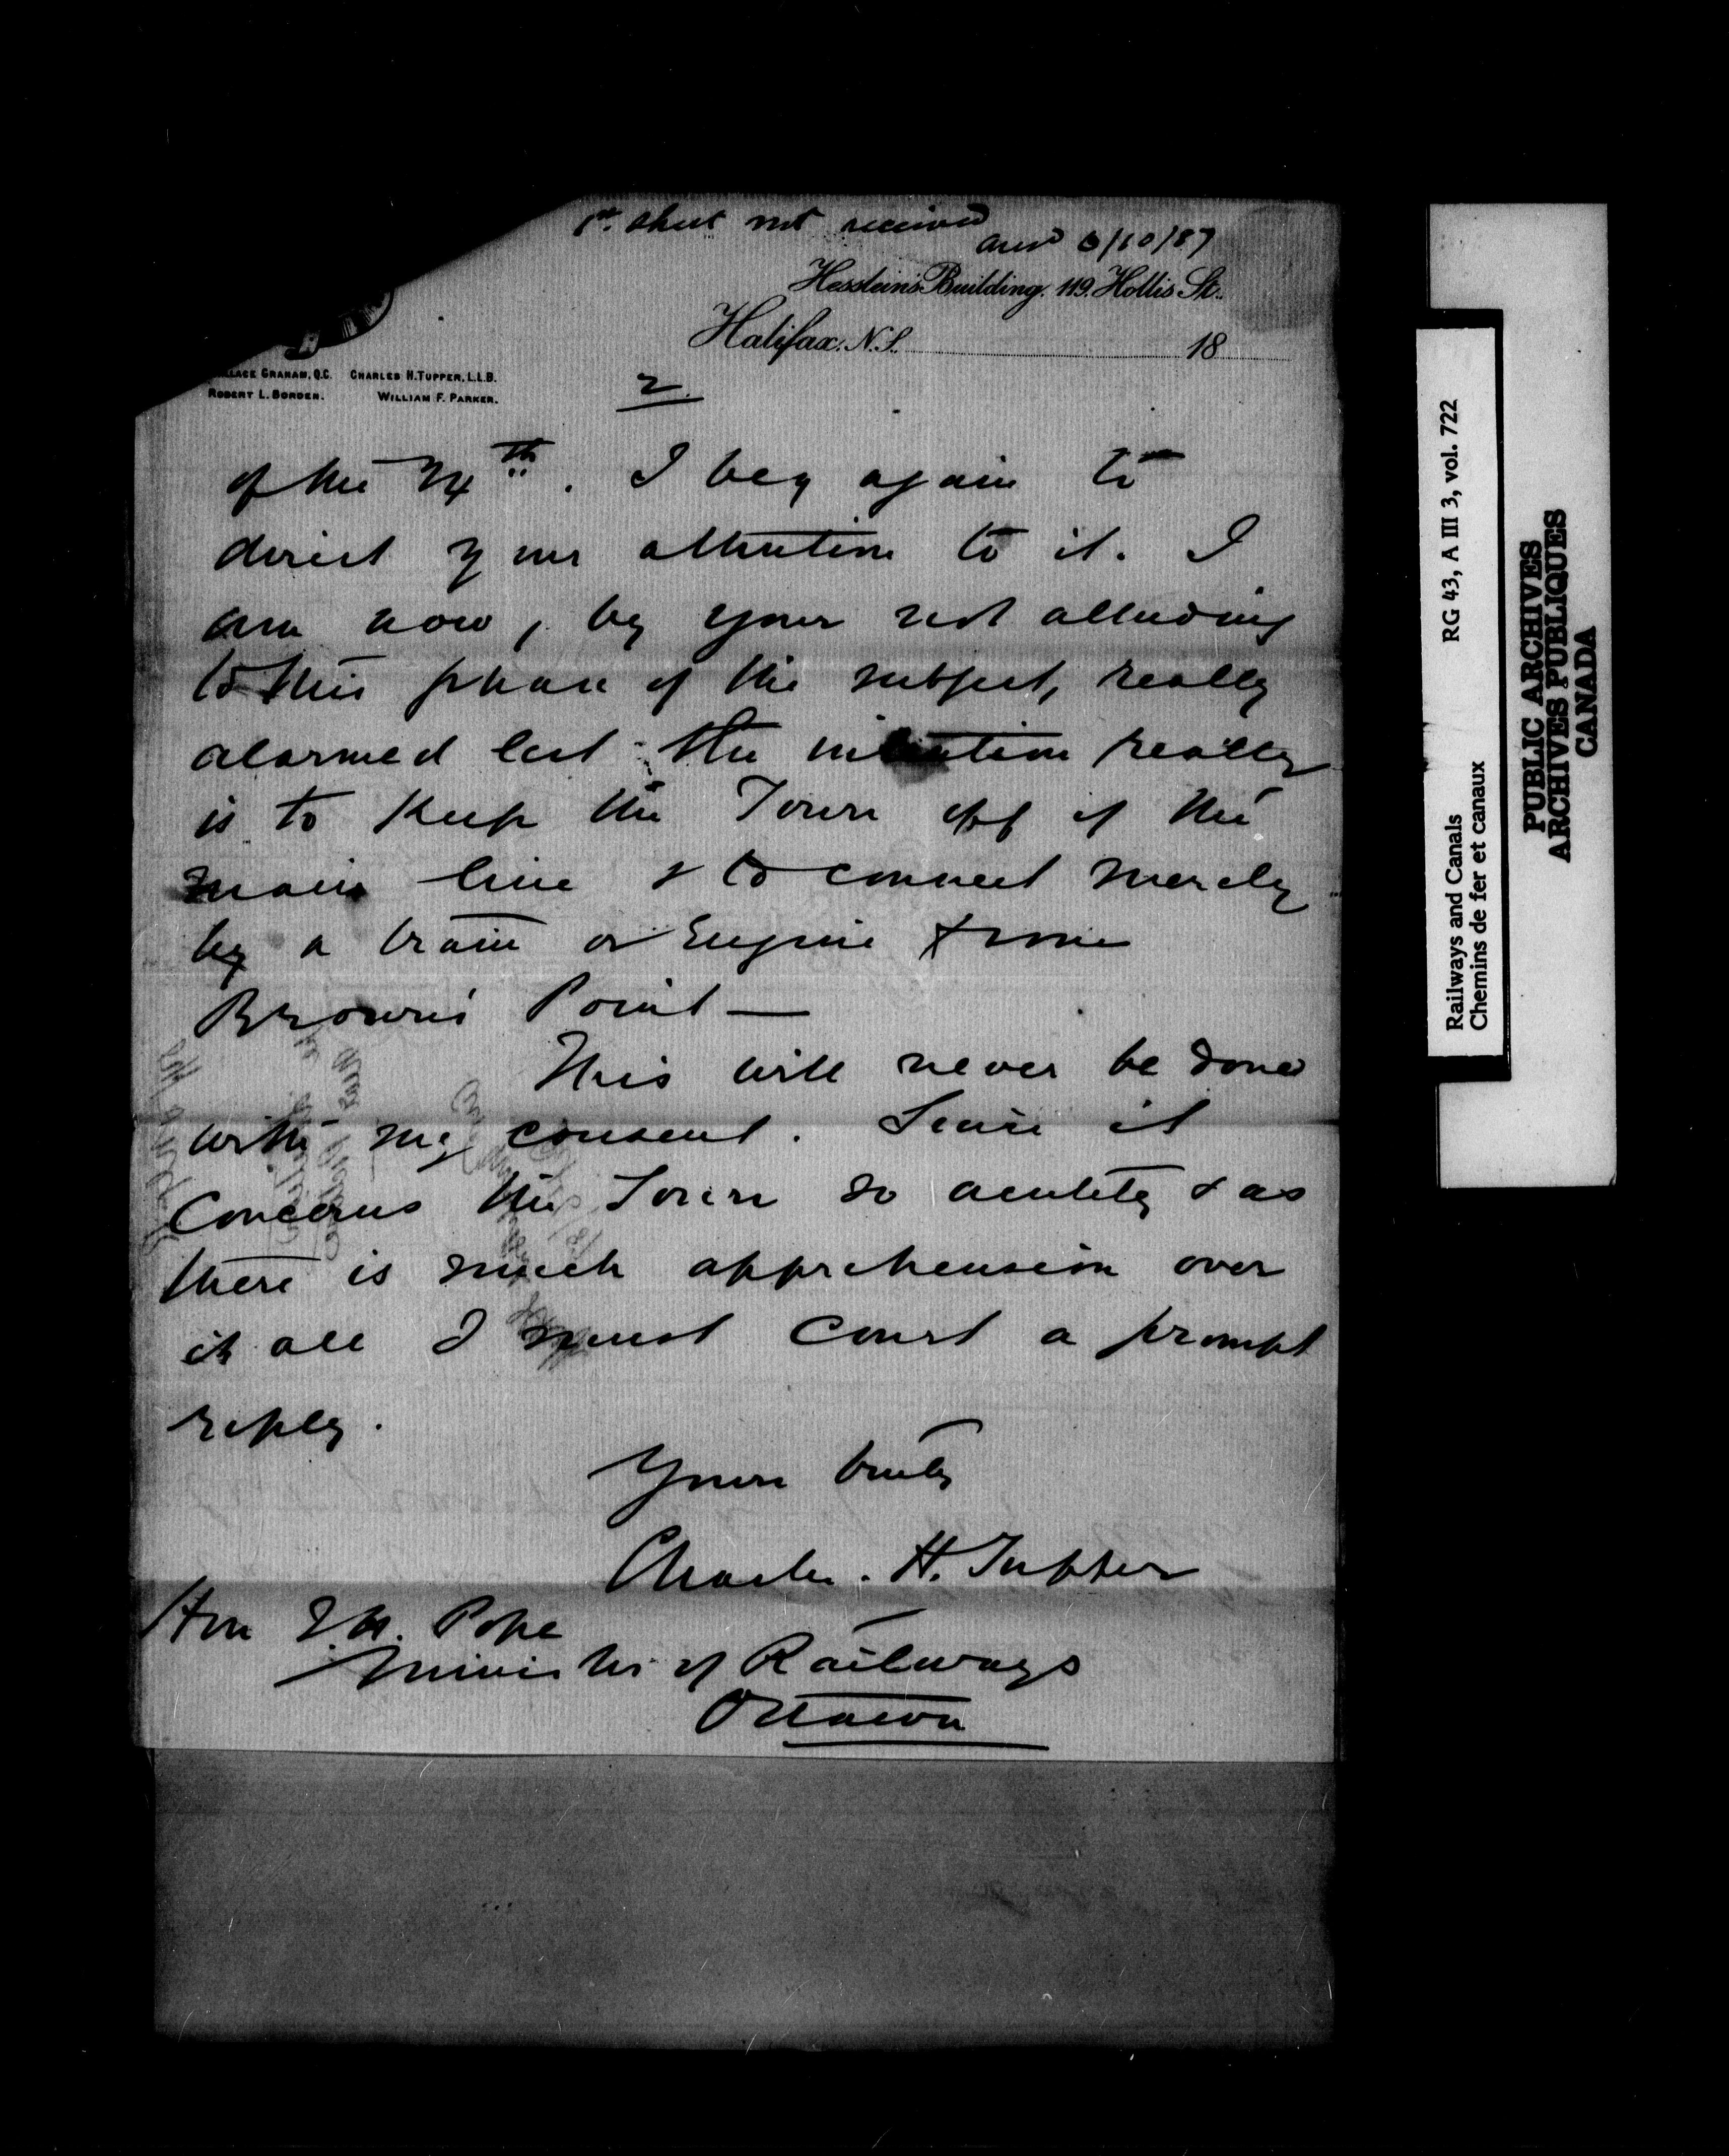 1st. sheet not received
ansd 6/10/87
Hesslein's Building. 119. Hollis St.
Halifax. N.S. 18
WALLACE GRAHAM, Q.C. CHARLES H. TUPPER, L.L.B.
ROBERT L. BORDEN. WILLIAM F. PARKER.
2.
of the 24th. I beg again to
direct your attention to it. I
am now, by your not alluding
to this phase of the subject, really
alarmed lest the intention really
is to keep the Town off of the
main line & to connect merely
by a train or Engine from
Brown's Point —
This will never be done
with my consent. Since it
concerns the Town so acutely & as
there is much apprehension over
it all I must court a prompt
reply.
Yours truly
Charles. H. Tupper
Hon J.H. Pope
Minister of Railways
Ottawa
Railways and Canals RG 43, A III 3, vol. 722
Chemins de fer et canaux
PUBLIC ARCHIVES
ARCHIVES PUBLIQUES
CANADA